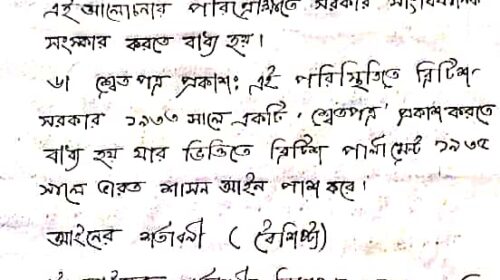 এই আলোচনার পরিপ্রেক্ষিতে সরকার সাংবিধানিক
সংস্কার করতে বাধ্য হয়।
৬। শ্বেতপত্র প্রকাশঃ এই পরিস্থিতিতে ব্রিটিশ
সরকার ১৯৩৩ সালে একটি 'শ্বেতপত্র' প্রকাশ করতে
বাধ্য হয় যার ভিত্তিতে ব্রিটিশ পার্লামেন্ট ১৯৩৫
সালে ভারত শাসন আইন পাশ করে।
আইনের শর্তাবলী ( বৈশিষ্ট্য)